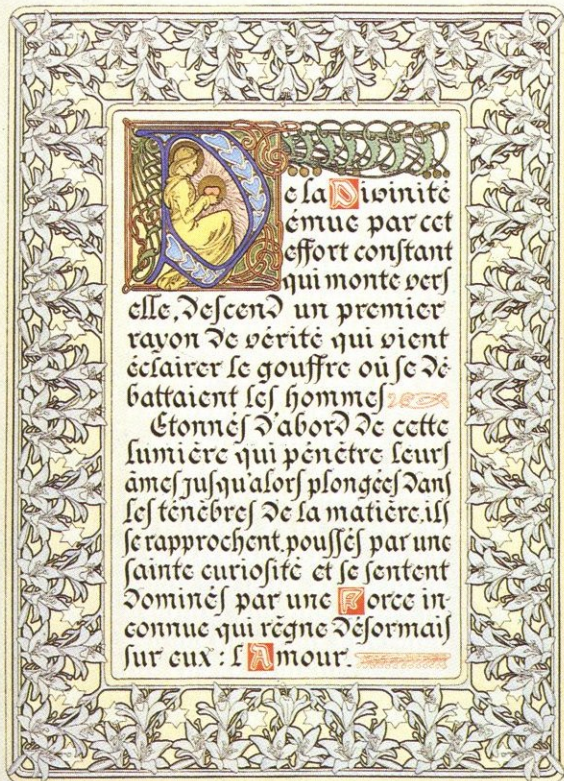 De la Divinité
émue par cet
effort conſtant
qui monte verſ
elle, deſcend un premier
rayon de vérité qui vient
éclairer le gouffre où ſe dé-
battaient leſ hommeſ
Étonnéſ d'abord de cette
lumière qui pénètre leurſ
âmeſ juſqu'alorſ plongéeſ danſ
leſ ténèbreſ de la matière, ilſ
ſe rapprochent, pouſſéſ par une
ſainte curioſité et ſe ſentent
dominéſ par une Force in-
connue qui règne déſormaiſ
ſur eux : l'Amour.